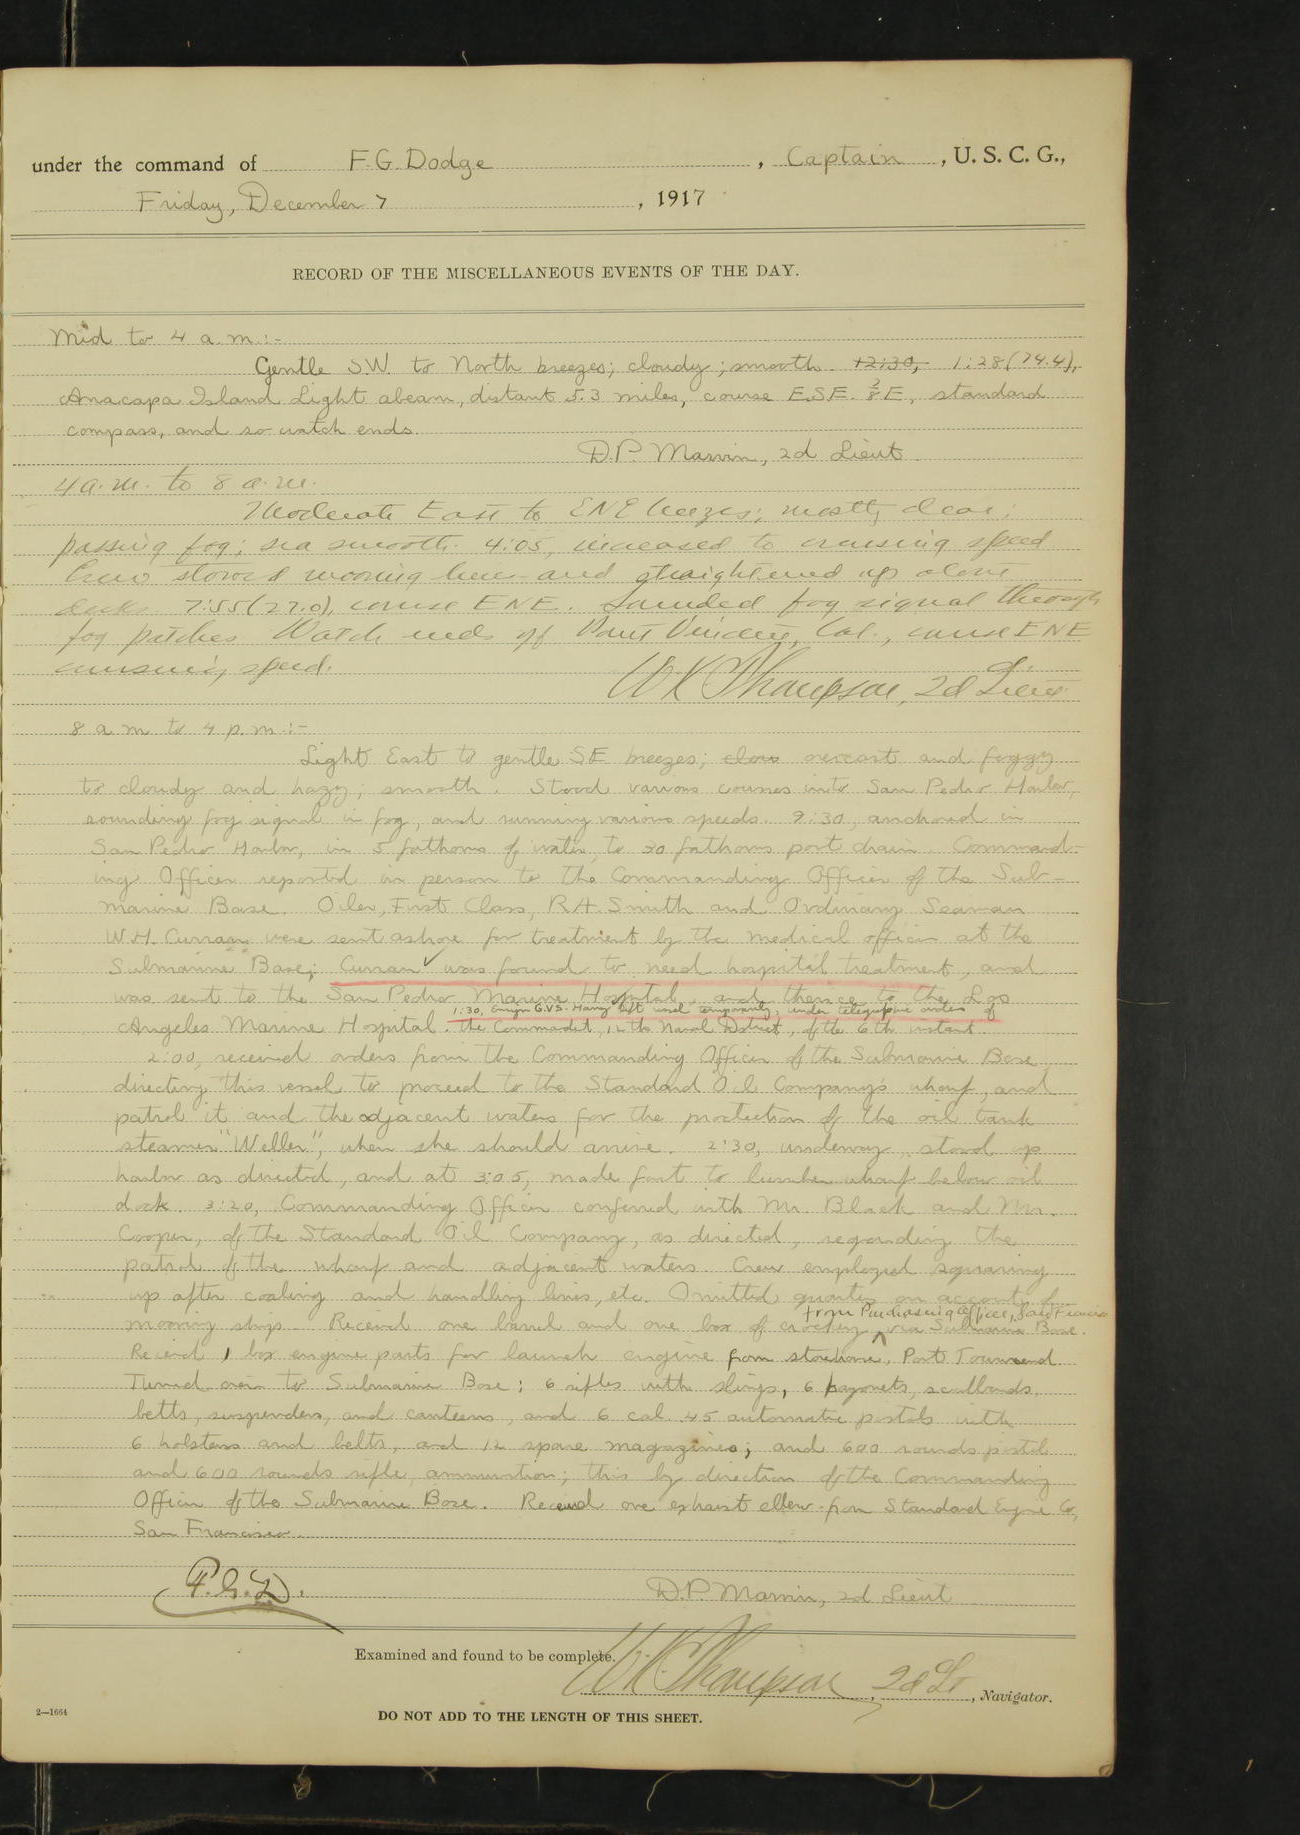 under the command of F. G. Dodge, Captain, U. S. C. G.,
Friday, December 7, 1917
RECORD OF THE MISCELLANEOUS EVENTS OF THE DAY.
Mid to 4 a.m.:-
Gentle SW. to North breezes; cloudy; smooth. 12:30, 1:28 (74.4),
Anacapa Island Light abeam, distant 5.3 miles, course ESE. 3/8 E, standard
compass, and so watch ends.
D.P. Marvin, 2d Lieut
4 a.m. to 8 a.m.
Moderate East to ENE breezes; mostly clear;
passing fog; sea smooth. 4:05, increased to cruising speed
Crew stowed mooring lines and straightened up about
decks. 7:55 (27.0), course ENE. Sounded fog signal through
fog patches Watch ends off Point Vincent, Cal., course ENE
cruising speed.
W K Thompson, 2d Lieut
8 a m to 4 p. m.:-
Light East to gentle SE breezes; clow overcast and foggy
to cloudy and hazy; smooth. Stood various courses into San Pedro Harbor,
sounding fog signal in fog, and running various speeds. 9:30, anchored in
San Pedro Harbor, in 5 fathoms of water, to 30 fathoms port chain. Command-
ing Officer reported in person to the Commanding Officer of the Sub-
marine Base. Oiler, First Class, R.H. Smith and Ordinary Seaman
W.H. Curran were sent ashore for treatment by the medical officer at the
Submarine Base; Curran was found to need hospital treatment, and
was sent to the San Pedro Marine Hospital, and thence to the Los
1:30, Ensign G.V.S. left vessel temporarily, under telegraphic orders of
Angeles Marine Hospital. the Commandt, 12th Naval District, of the 6th instant
2:00, received orders from the Commanding Officer of the Submarine Base
directing this vessel to proceed to the Standard Oil Company's wharf, and
patrol it and the adjacent waters for the protection of the oil tank
steamer "Weller", when she should arrive. 2:30, underway, stood up
harbor as directed, and at 3:05, made fast to lumber wharf below oil
dock. 3:20, Commanding Officer conferred with Mr. Black and Mr.
Cooper, of the Standard Oil Company, as directed, regarding the
patrol of the wharf and adjacent waters. Crew employed squaring
up after coaling and handling lines, etc. Omitted quarters on account of
from Purchasing Office, San Francisco
mooring ship. Received one barrel and one box of crockery ^ via Submarine Base.
Received 1 box engine parts for launch engine from storehouse, Port Townsend.
Turned over to Submarine Base: 6 rifles with slings, 6 bayonets, scabbards,
belts, suspenders, and canteens, and 6 cal .45 automatic pistols with
6 holsters and belts, and 12 spare magazines; and 600 rounds pistol
and 600 rounds rifle, ammunition; this by direction of the Commanding
Officer of the Submarine Base. Received one exhaust elbow from Standard Engine Co,
San Francisco.
F.G.D.
D.P. Marvin, 2d Lieut
Examined and found to be complete.
W K Thompson, 2d Lt, Navigator.
2—1664
DO NOT ADD TO THE LENGTH OF THIS SHEET.